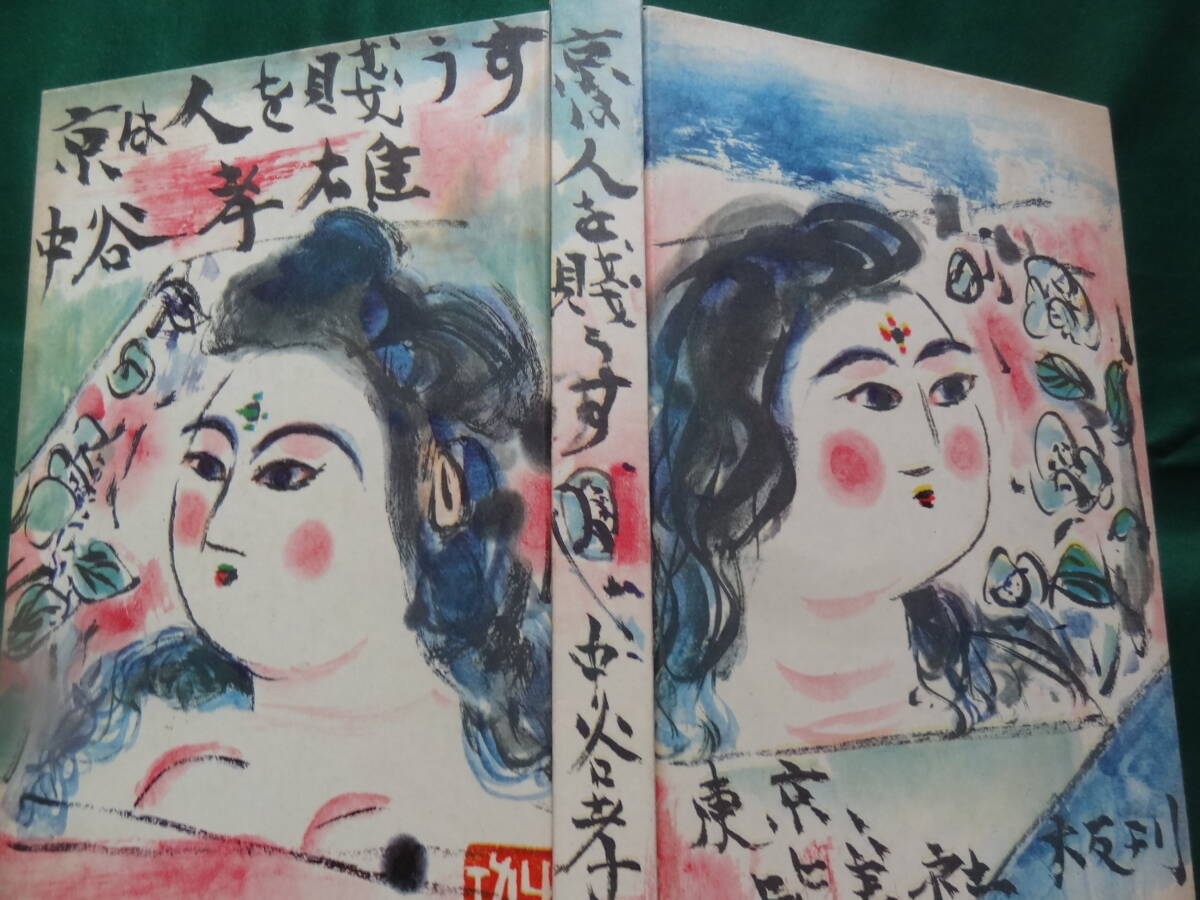 京は人を賤うす
中谷孝雄
京は人を賤うす
中谷孝
東京
皆美社 板刊